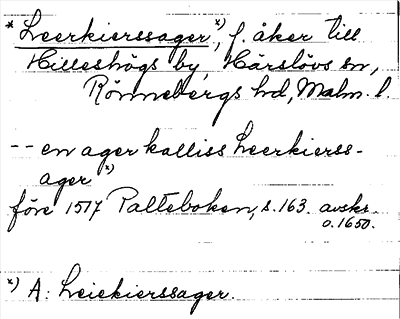 * Leerkierssager x), f. åker till
Hilleshögs by, Härslövs sn,
Rönnebergs hd, Malm. l.
-- en ager kalliss Leerkierss-
ager x)
före 1517 Palteboken, s. 163. avskr.
o. 1650.
x) A: Leiekierssager.